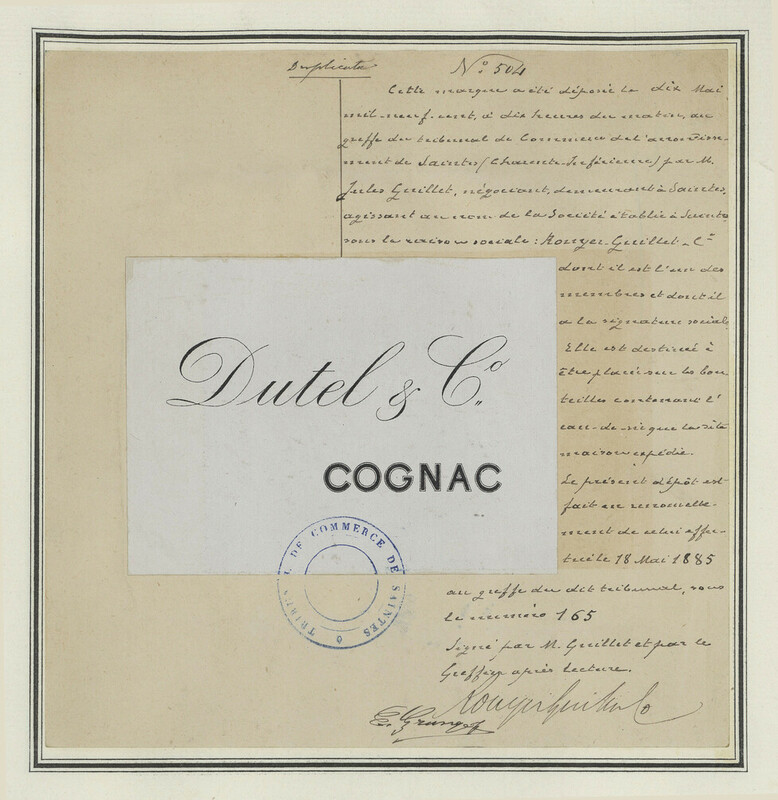 Duplicata
N° 504
Cette marque a été déposée le dix Mai
mil neuf cent, à dix heures du matin, au
greffe du tribunal de Commerce de l'arrondisse-
ment de Saintes (Charente-Inférieure) par M.
Jules Guillet, négociant, demeurant à Saintes,
agissant au nom de la Société établie à Saintes
sous la raison sociale : Rouyer, Guillet & Cie
dont il est l'un des
membres et dont il
a la signature sociale
Elle est destinée à
être placée sur les bou-
teilles contenant l'
eau-de-vie que la dite
maison expédie.
Le présent dépôt est
fait en renouvelle-
ment de celui effec-
tué le 18 Mai 1885
au greffe du dit tribunal, sous
le numéro 165
Signé par M. Guillet et par le
Greffier après lecture.
Rouyer Guillet & Co
Dutel & Co.
COGNAC
TRIBUNAL DE COMMERCE DE SAINTES